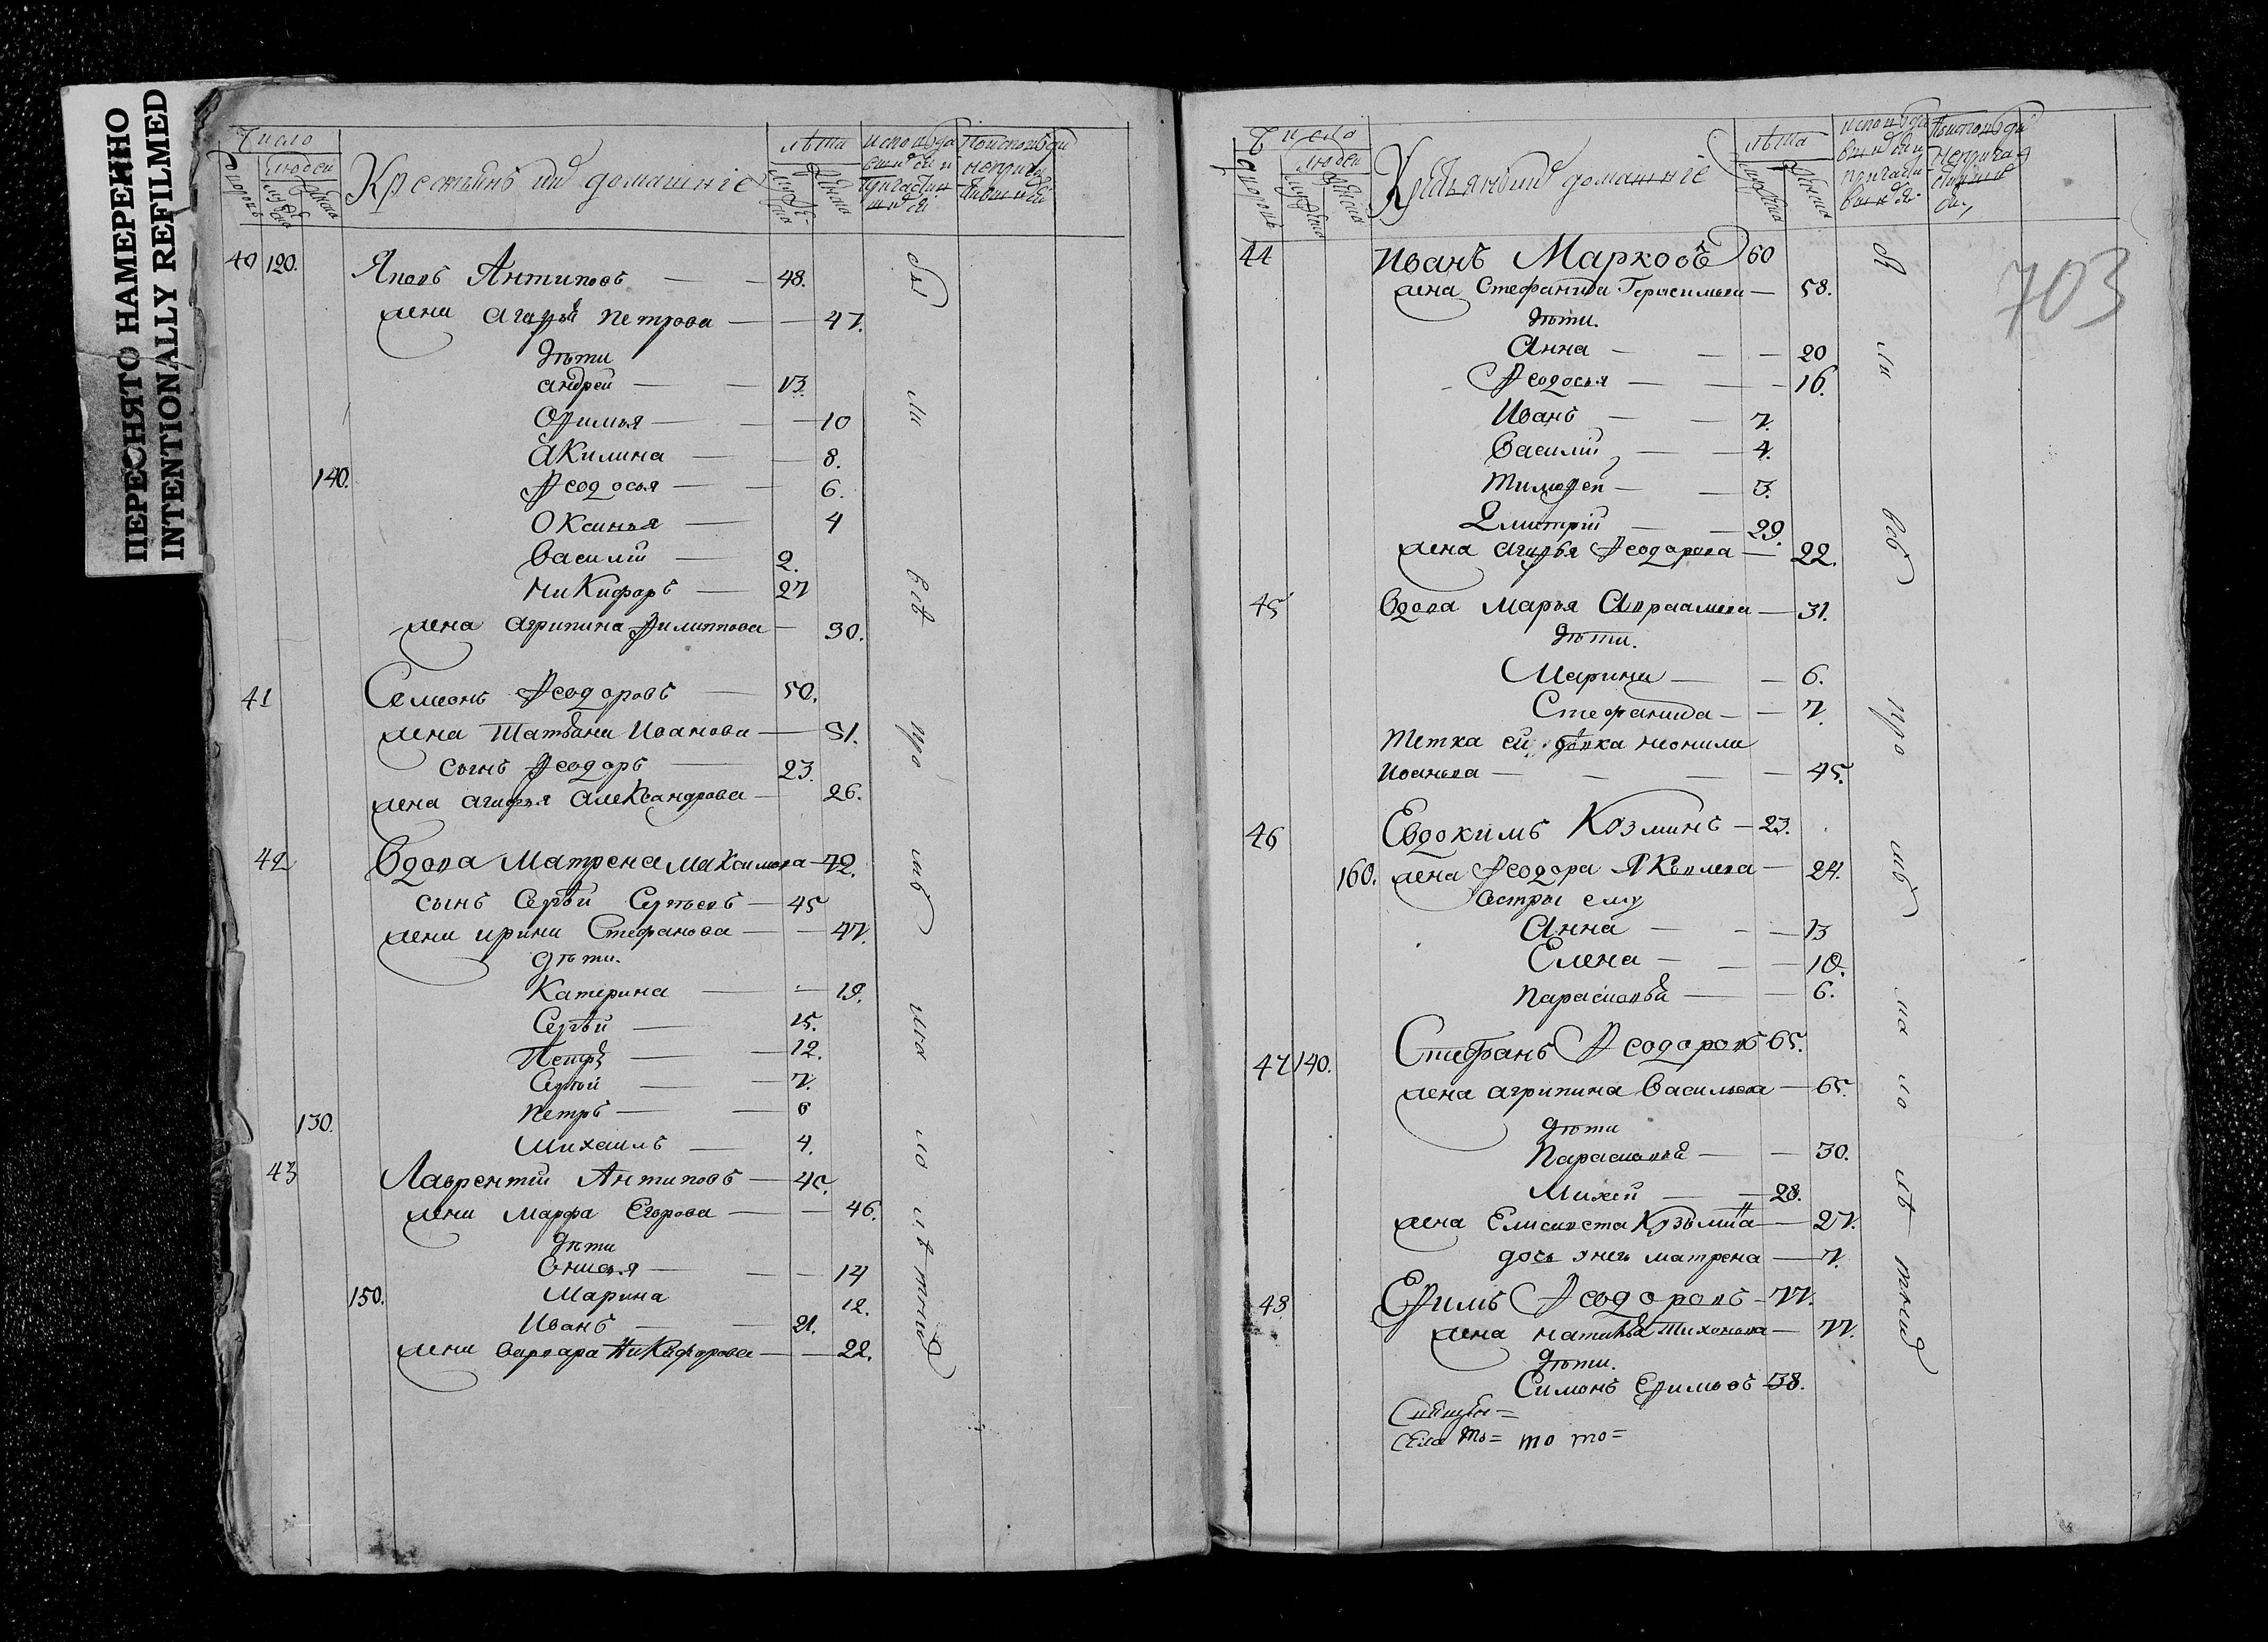 ПЕРЕСНЯТО НАМЕРЕННО
INTENTIONALLY REFILMED
Число
людей
Крестьянъ ии домашніе
лѣта
40 120. Яковъ Антиповъ 48.
жена Агафья Петрова 47.
дѣти
андрей 13.
Офимья 10
Акилина 8.
140. Ѳеодосья 6.
Оксинья 4
Василій 2.
Никифоръ 27
жена агрипина Филиппова 30.
41 Семионъ Ѳеодоровъ 50.
жена Татьяна Иванова 51.
сынъ Ѳеодоръ 23.
жена агафья александрова 26.
42 Вдова Матрена Максимова 72.
сынъ Сергѣй Сергѣевъ 45
жена ирина Стефанова 47.
дѣти.
Катерина 19.
Сергѣй 15.
12.
Сергѣй 7.
130. Петръ 6
Михаилъ 4.
43 Лаврентій Антиповъ
жена марфа Егорова 46.
дѣти
Онисья 14
150. Марина 12.
Иванъ 21.
жена варвара Никифорова 22.
Число
людей
домашніе
лѣта
703
44 Иванъ Марковъ 60
жена Стефанида Герасимова 58.
дѣти.
Анна 20
Ѳеодосья 16.
Иванъ 7.
Василій 4.
Тимоѳей 3.
Дмитрій 29.
жена агафья Ѳеодорова 22.
45 Вдова марья Авраамова 31.
дѣти.
Марина 6.
Стефанида 7.
тетка ей дѣвка неонила
Иванова 45.
46 Евдокимъ Козминъ 23.
160. жена Ѳеодора Яковлева 24.
Сестры ему
Анна 13
Елена 10.
парасковья 6.
47 140. Стефанъ Ѳеодоровъ 65.
жена агрипина Васильева 65.
дѣти
Парасковья 30.
Михей 28.
жена Елисавета Кузьмина 27.
дочь у нихъ матрена 7.
48 Ефимъ Ѳеодоровъ 77.
жена наталья Тихонова 77.
дѣти.
Симонъ Ефимовъ 38.